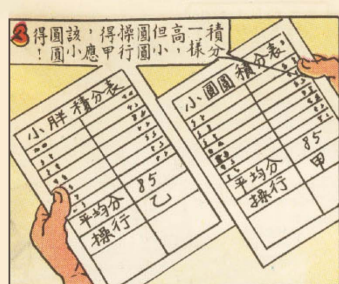 3
積分
一樣
高，
但小
圓圓
操行
得甲
，應
該小
圓圓
得！
小胖積分表
平均分 85
操行 乙
小圓圓積分表
平均分 85
操行 甲